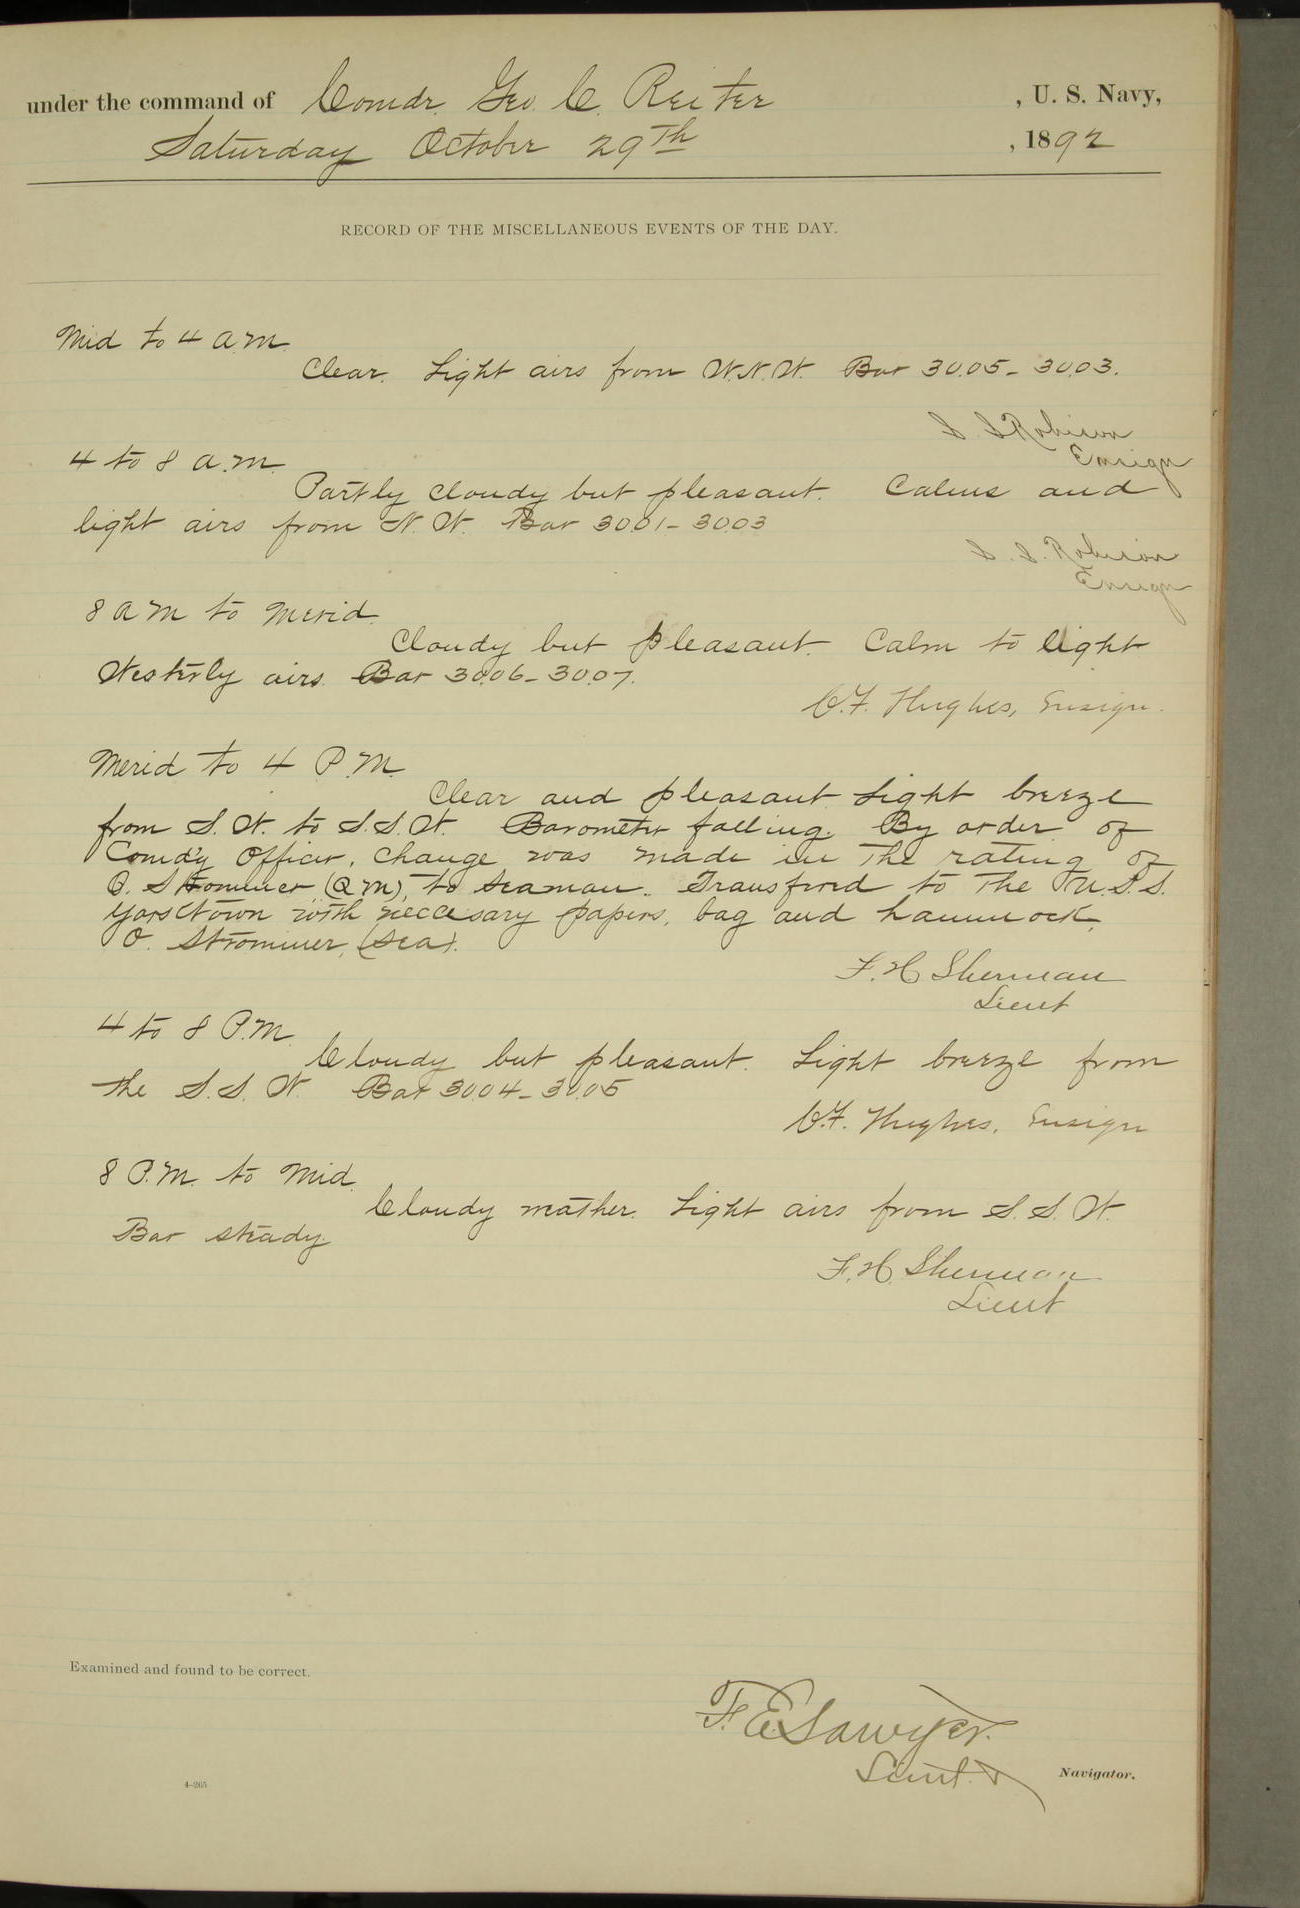 under the command of Comdr. Geo. C. Reiter, U. S. Navy,
Saturday October 29th, 1892
RECORD OF THE MISCELLANEOUS EVENTS OF THE DAY.
Mid to 4 a.m.
Clear. Light airs from W.N.W. Bar 30.05 - 30.03.
S. S. Robison
Ensign
4 to 8 a.m.
Partly cloudy but pleasant. Calms and
light airs from N.W. Bar 30.01 - 30.03
S. S. Robison
Ensign
8 AM to Merid.
Cloudy but pleasant. Calm to light
Westerly airs. Bar 30.06 - 30.07.
C.F. Hughes, Ensign.
Merid to 4 P.M.
Clear and pleasant. Light breeze
from S.W. to S.S.W. Barometer falling. By order of
Comd'g Officer, change was made in the rating of
O. Strommer (Q M), to seaman. Transfired to the U.S.S.
Yorktown with neccesary papers, bag and hammock,
O. Strommer, (Sea).
F. H. Sherman
Lieut
4 to 8 P.M.
Cloudy but pleasant. Light breeze from
the S.S.W. Bar 30.04 - 30.05
C.F. Hughes, Ensign
8 P.M. to Mid.
Cloudy weather. Light airs from S.S.W.
Bar steady.
F. H. Sherman
Lieut
Examined and found to be correct.
F. E. Sawyer.
Lieut. &
Navigator.
4-265